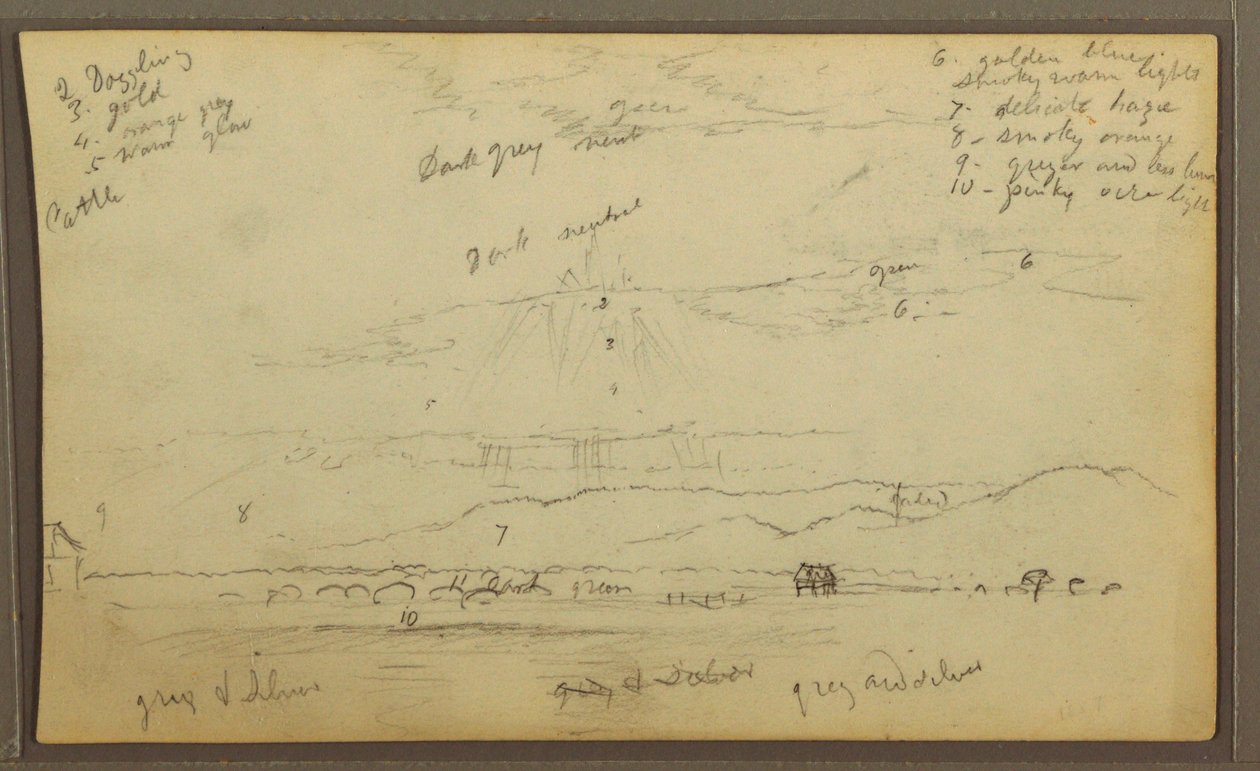 2 Dazzling
3. gold
4. orange grey
5 warm glow
Cattle
6. golden blue
smoky warm lights
7 - delicate haze
8 - smoky orange
9 - greyer and less
10 - pinky light
green
Dark grey neut
Dark neutral
open
6
2
6
3
4
5
9
8
7
11 Dark green
10
grey & silver
grey & silver
grey and silver